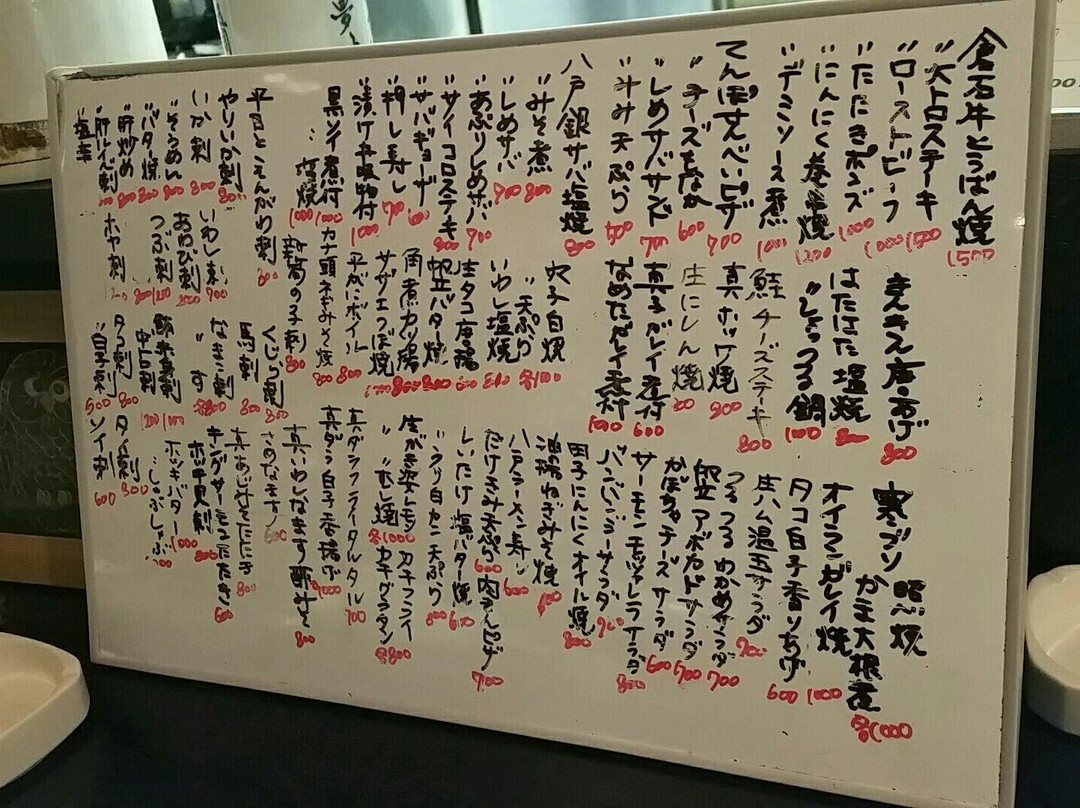 夢
倉石牛とうばん焼 1500
〃大トロステーキ 1500
〃ローストビーフ 1000
〃たたきポンズ 1000
〃にんにく巻串焼 1200
〃デミソース煮 1000
てんぽせんべいピザ 700
〃チーズもなか 600
〃しめサバサンド 700
〃汁み天ぷら 500
八戸銀サバ塩焼 800
〃みそ煮 800
〃しめサバ 700
〃あぶりしめサバ 700
〃サイコロステーキ 800
〃サバギョーザ 600
〃押し寿し 700
〃漬け串吸物付 1000
黒ソイ煮付 1000
〃塩焼 1000
平目とえんがわ刺 800
やりいか刺 800
いか刺 800
〃そうめん 800
〃バタ焼 800
〃肝炒め 800
〃肝ぽん刺
〃塩辛
きんきん唐あげ 800
はたはた塩焼 800
〃しょっつる鍋 1000
鮭チーズステーキ 800
真ホッケ焼 800
生にしん焼
真子ガレイ煮付 600
なめたガレイ煮付 1000
穴子白焼
〃天ぷら 各1100
いわし塩焼
生タコ唐揚
帆立バター焼 800
角煮カツ揚
サザエつぼ焼
平がにボイル 800
カナ頭ネギみそ焼 800
新筍の子刺 800
いわし刺 700
あわび刺
つぶ刺
ホヤ刺
くじら刺 800
馬刺 800
なまこ刺
〃す 各800
中とろ刺
タコ刺 800
〃白子刺 500
寒ブリ
照り焼
かま大根煮 各1000
オイランガレイ焼 1000
タコ白子香りあげ 600
生ハム温玉サラダ 700
つるつるわかめサラダ 700
帆立アボカドサラダ 700
かぼちゃチーズサラダ 600
サーモンモッツァレラサラダ 800
バンバンジーサラダ
団子にんにくオイル焼 800
油揚ねぎみそ焼
八戸ラーメン寿し 600
だけきみ天ぷら 600
肉うどんピザ 700
しいたけ塩バター焼
〃
生がき姿レモン
〃むし焼 各1000
カキフライ
カキグラタン 各800
真ダラフライタルタル 700
真ダラ白子香揚げ
真いわしなます酢〆 800
さめなます 600
真あじ
キングサーモンたたき 600
ホッキ貝刺 800
ホッキバター
〃しゃぶしゃぶ
タイ刺 800
ソイ刺 600